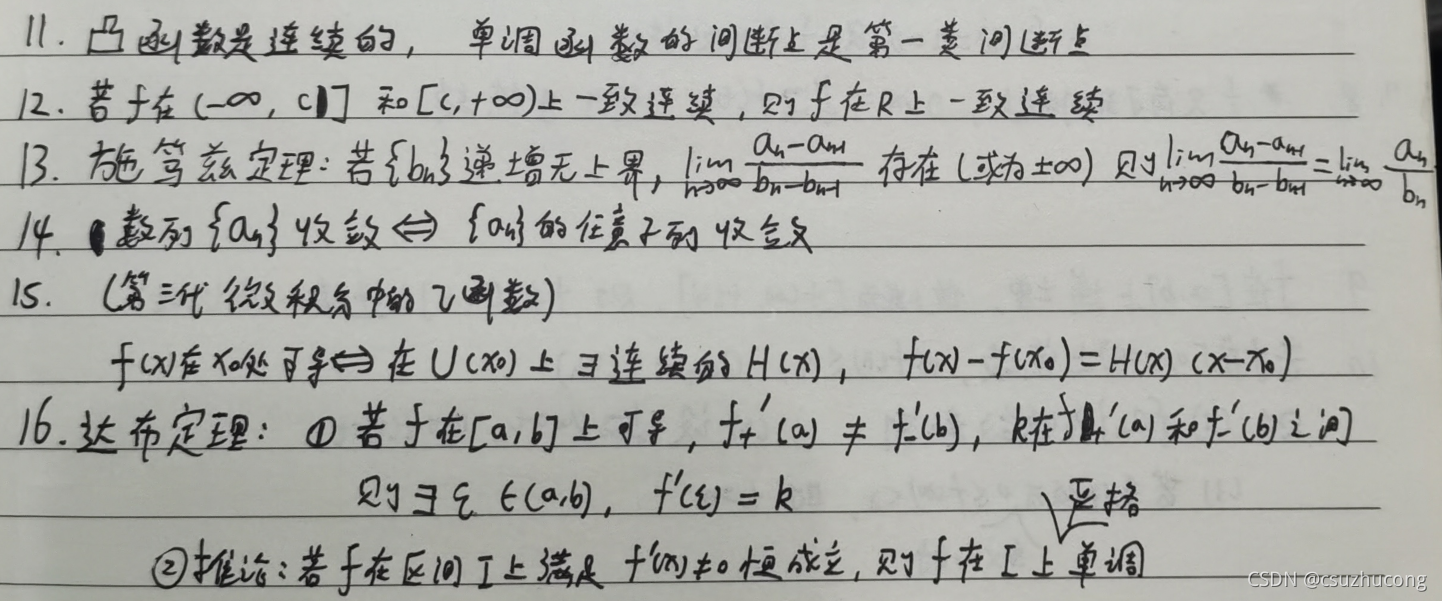 11. 凸函数是连续的, 单调函数的间断点是第一类间断点
12. 若f在(-∞, c] 和[c,+∞)上一致连续, 则f在R上一致连续
13. 施笃兹定理: 若{bn}递增无上界, lim n→∞ (an-an-1)/(bn-bn-1) 存在(或为±∞) 则 lim n→∞ (an-an-1)/(bn-bn-1) = lim n→∞ an/bn
14. 数列{an}收敛⇔{an}的任意子列收敛
15. (第三代微积分中的乙函数)
f(x)在x0处可导⇔在U(x0)上∃连续的H(x), f(x)-f(x0)=H(x)(x-x0)
16. 达布定理: ①若f在[a,b]上可导, f+'(a) ≠ f-'(b), k在f+'(a)和f-'(b)之间
则∃ξ∈(a,b), f'(ξ)=k
严格
②推论: 若f在区间I上满足 f'(x)≠0恒成立, 则f在I上单调
CSDN @csuzhucong